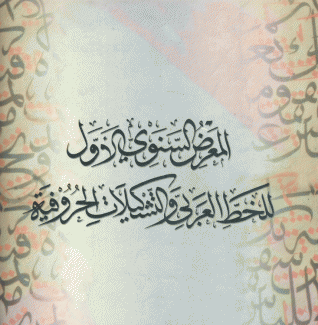 المعرض السنوي الأول
للخط العربي والتشكيلات الحروفية